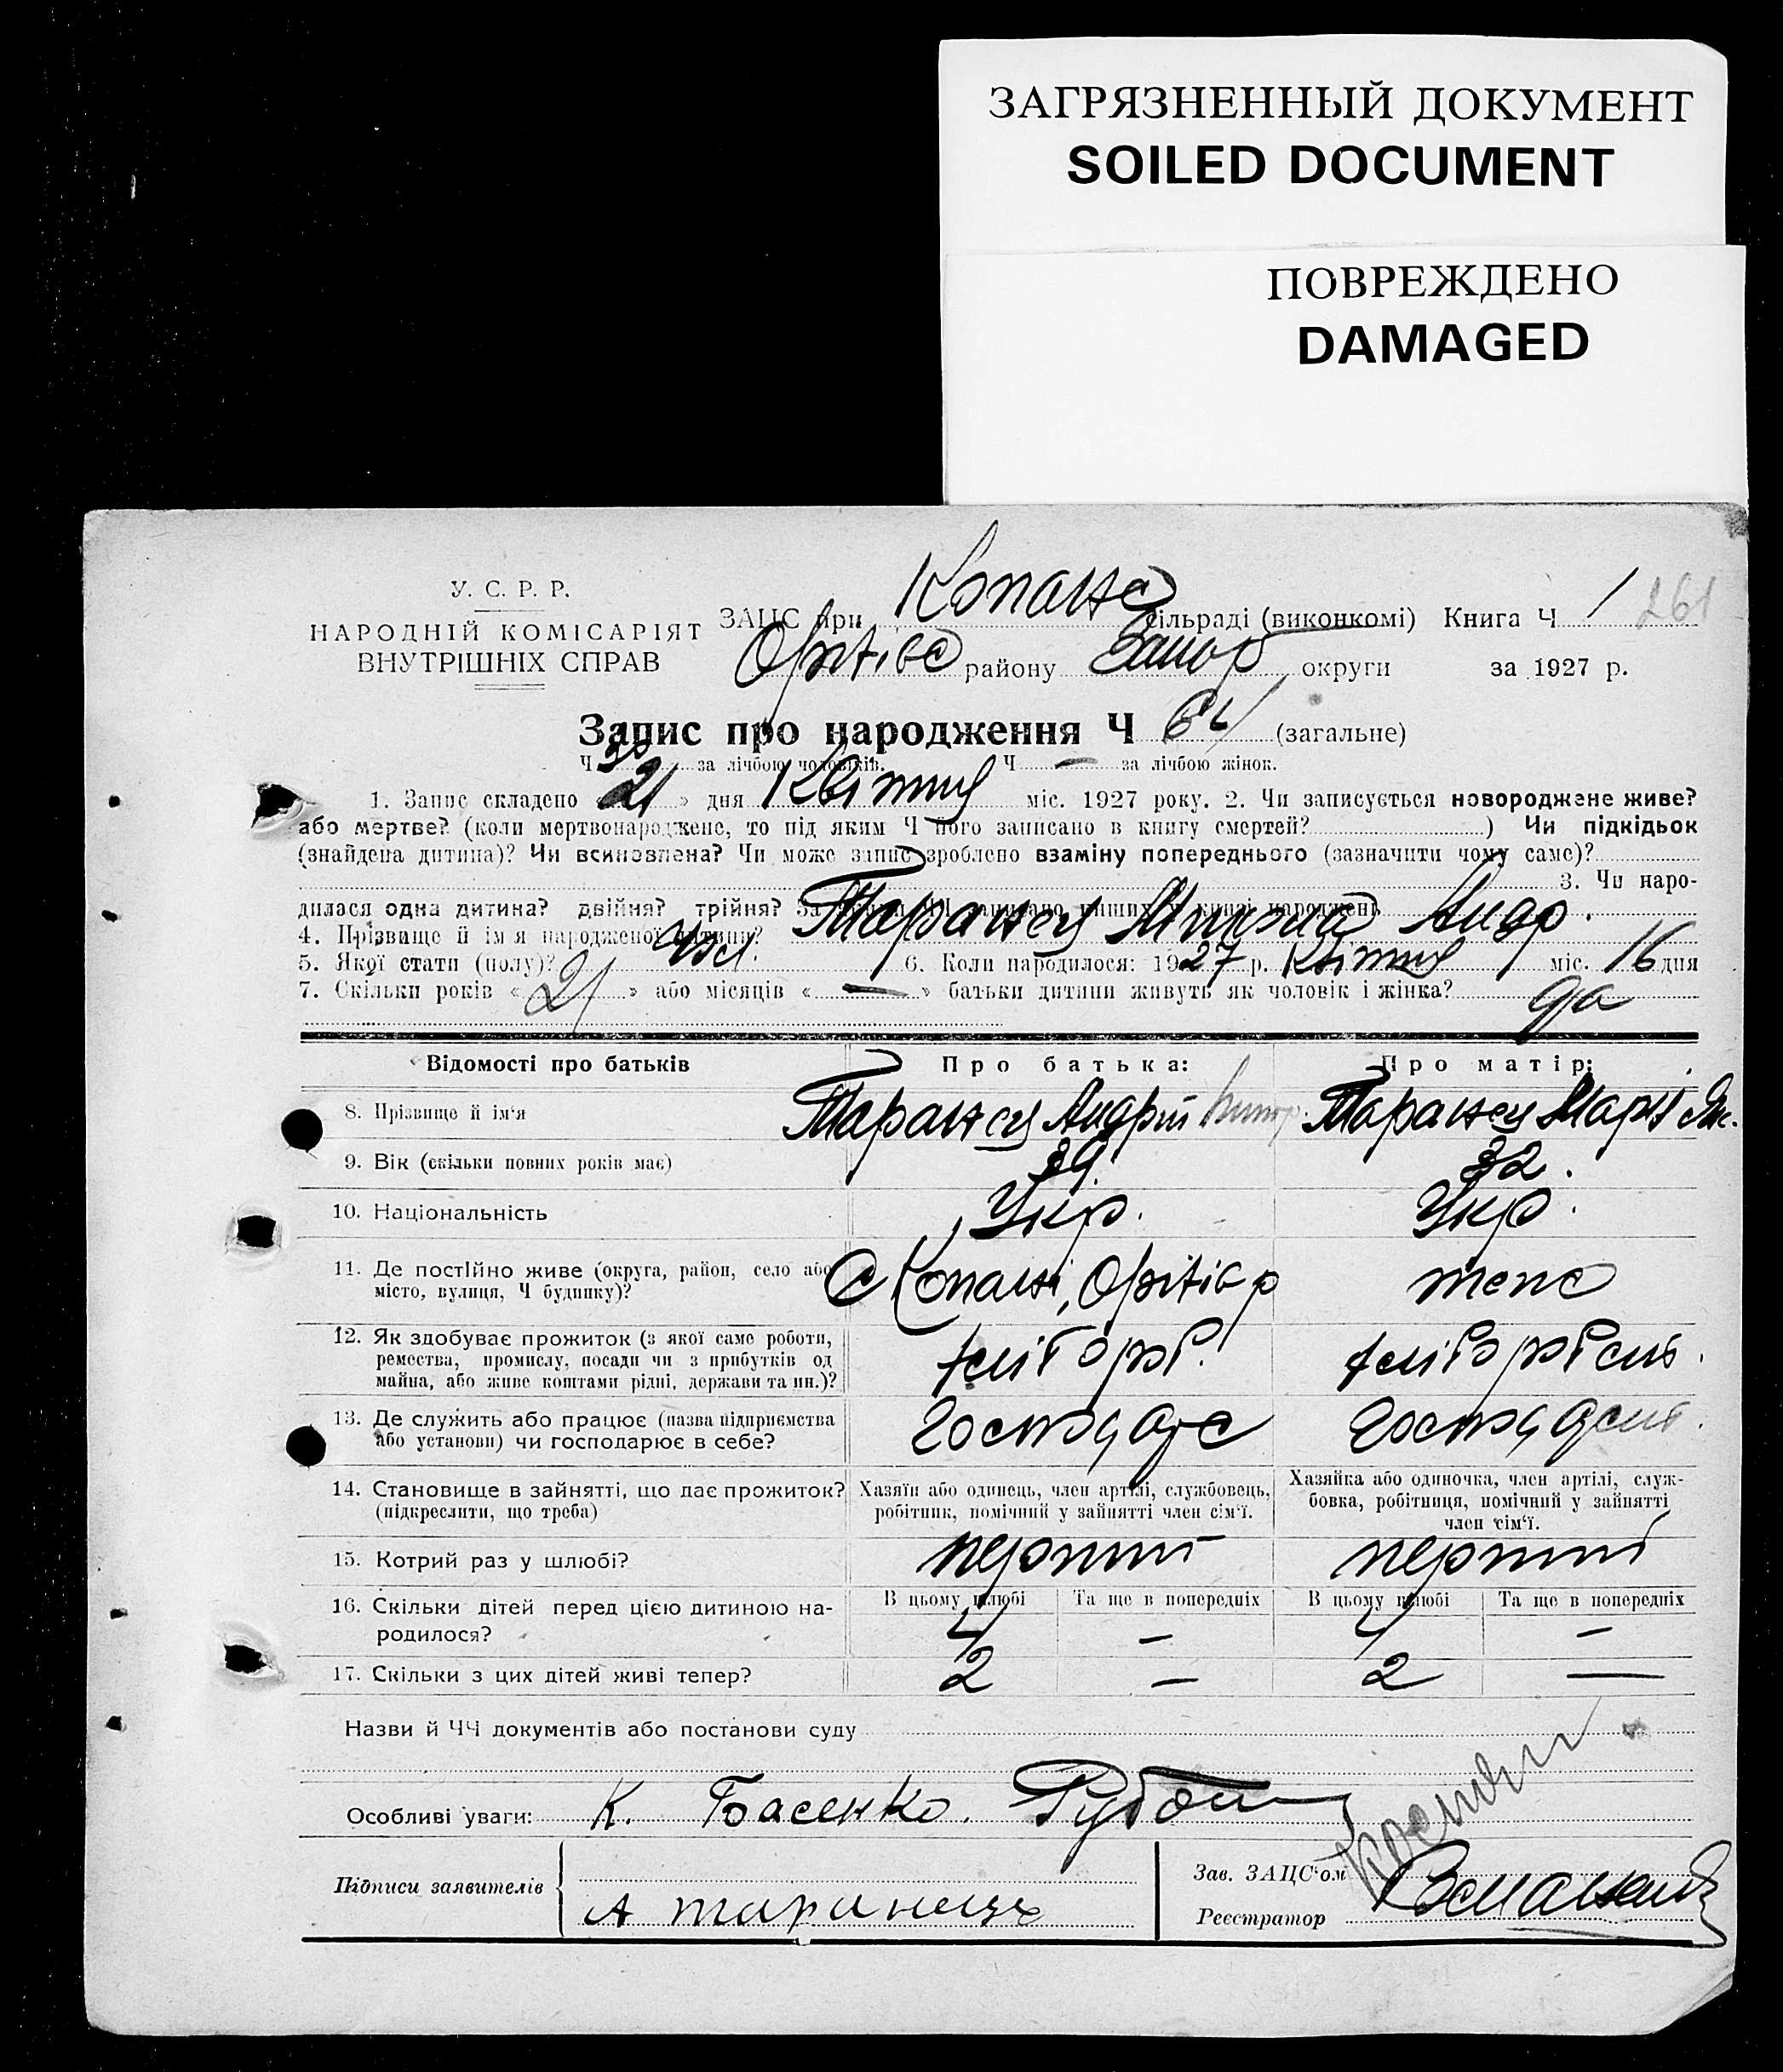 ЗАГРЯЗНЕННЫЙ ДОКУМЕНТ
SOILED DOCUMENT
ПОВРЕЖДЕНО
DAMAGED
У. С. Р. Р.
НАРОДНІЙ КОМІСАРІЯТ
ВНУТРІШНІХ СПРАВ
ЗАЦС при Копанс сільраді (виконкомі) Книга Ч 1 261
Оріхівс району Запор округи за 1927 р.
Запис про народження Ч 64 (загальне)
Ч 30 за лічбою чоловіків. Ч — за лічбою жінок.
1. Запис складено 21 » дня Квітня міс. 1927 року. 2. Чи записується новороджене живе?
або мертве? (коли мертвонароджене, то під яким Ч його записано в книгу смертей? ) Чи підкідьок
(знайдена дитина)? Чи всиновлена? Чи може запис зроблено взаміну попереднього (зазначити чому саме)?
3. Чи наро-
дилася одна дитина? двійня? трійня? За якими ЧЧ записано инших у книзі народжень
4. Прізвище й ім'я народженої дитини? Таранец Андр.
5. Якої стати (полу)? Чол. 6. Коли народилося: 1927 р. Квітня міс. 16 дня
7. Скільки років « 21 » або місяців « — » батьки дитини живуть як чоловік і жінка? да
Відомості про батьків Про батька: Про матір:
8. Прізвище й ім'я Таранец Андрій Таранец Марія Як.
9. Вік (скільки повних років має) 39. 32.
10. Національність Укр. Укр.
11. Де постійно живе (округа, район, село або місто, вулиця, Ч будинку)? С Копані, Оріхів р тене
12. Як здобуває прожиток (з якої саме роботи,
ремества, промислу, посади чи з прибутків од
майна, або живе коштами рідні, держави та ин.)? хліборб. хліборобств.
13. Де служить або працює (назва підприємства
або установи) чи господарює в себе?
14. Становище в зайнятті, що дає прожиток? Хазяїн або одинець, член артілі, службовець, Хазяйка або одиночка, член артілі, служ-
(підкреслити, що треба) робітник, помічний у зайнятті член сім'ї. бовка, робітниця, помічний у зайнятті
член сім'ї.
15. Котрий раз у шлюбі? перший перший
16. Скільки дітей перед цією дитиною на- В цьому шлюбі Та ще в попередніх В цьому шлюбі Та ще в попередніх
родилося? 4 — 4 —
17. Скільки з цих дітей живі тепер? 2 — 2 —
Назви й ЧЧ документів або постанови суду
Особливі уваги: К. Басенко.
Підписи заявителів Зав. ЗАЦС'ом
А таранець Реєстратор